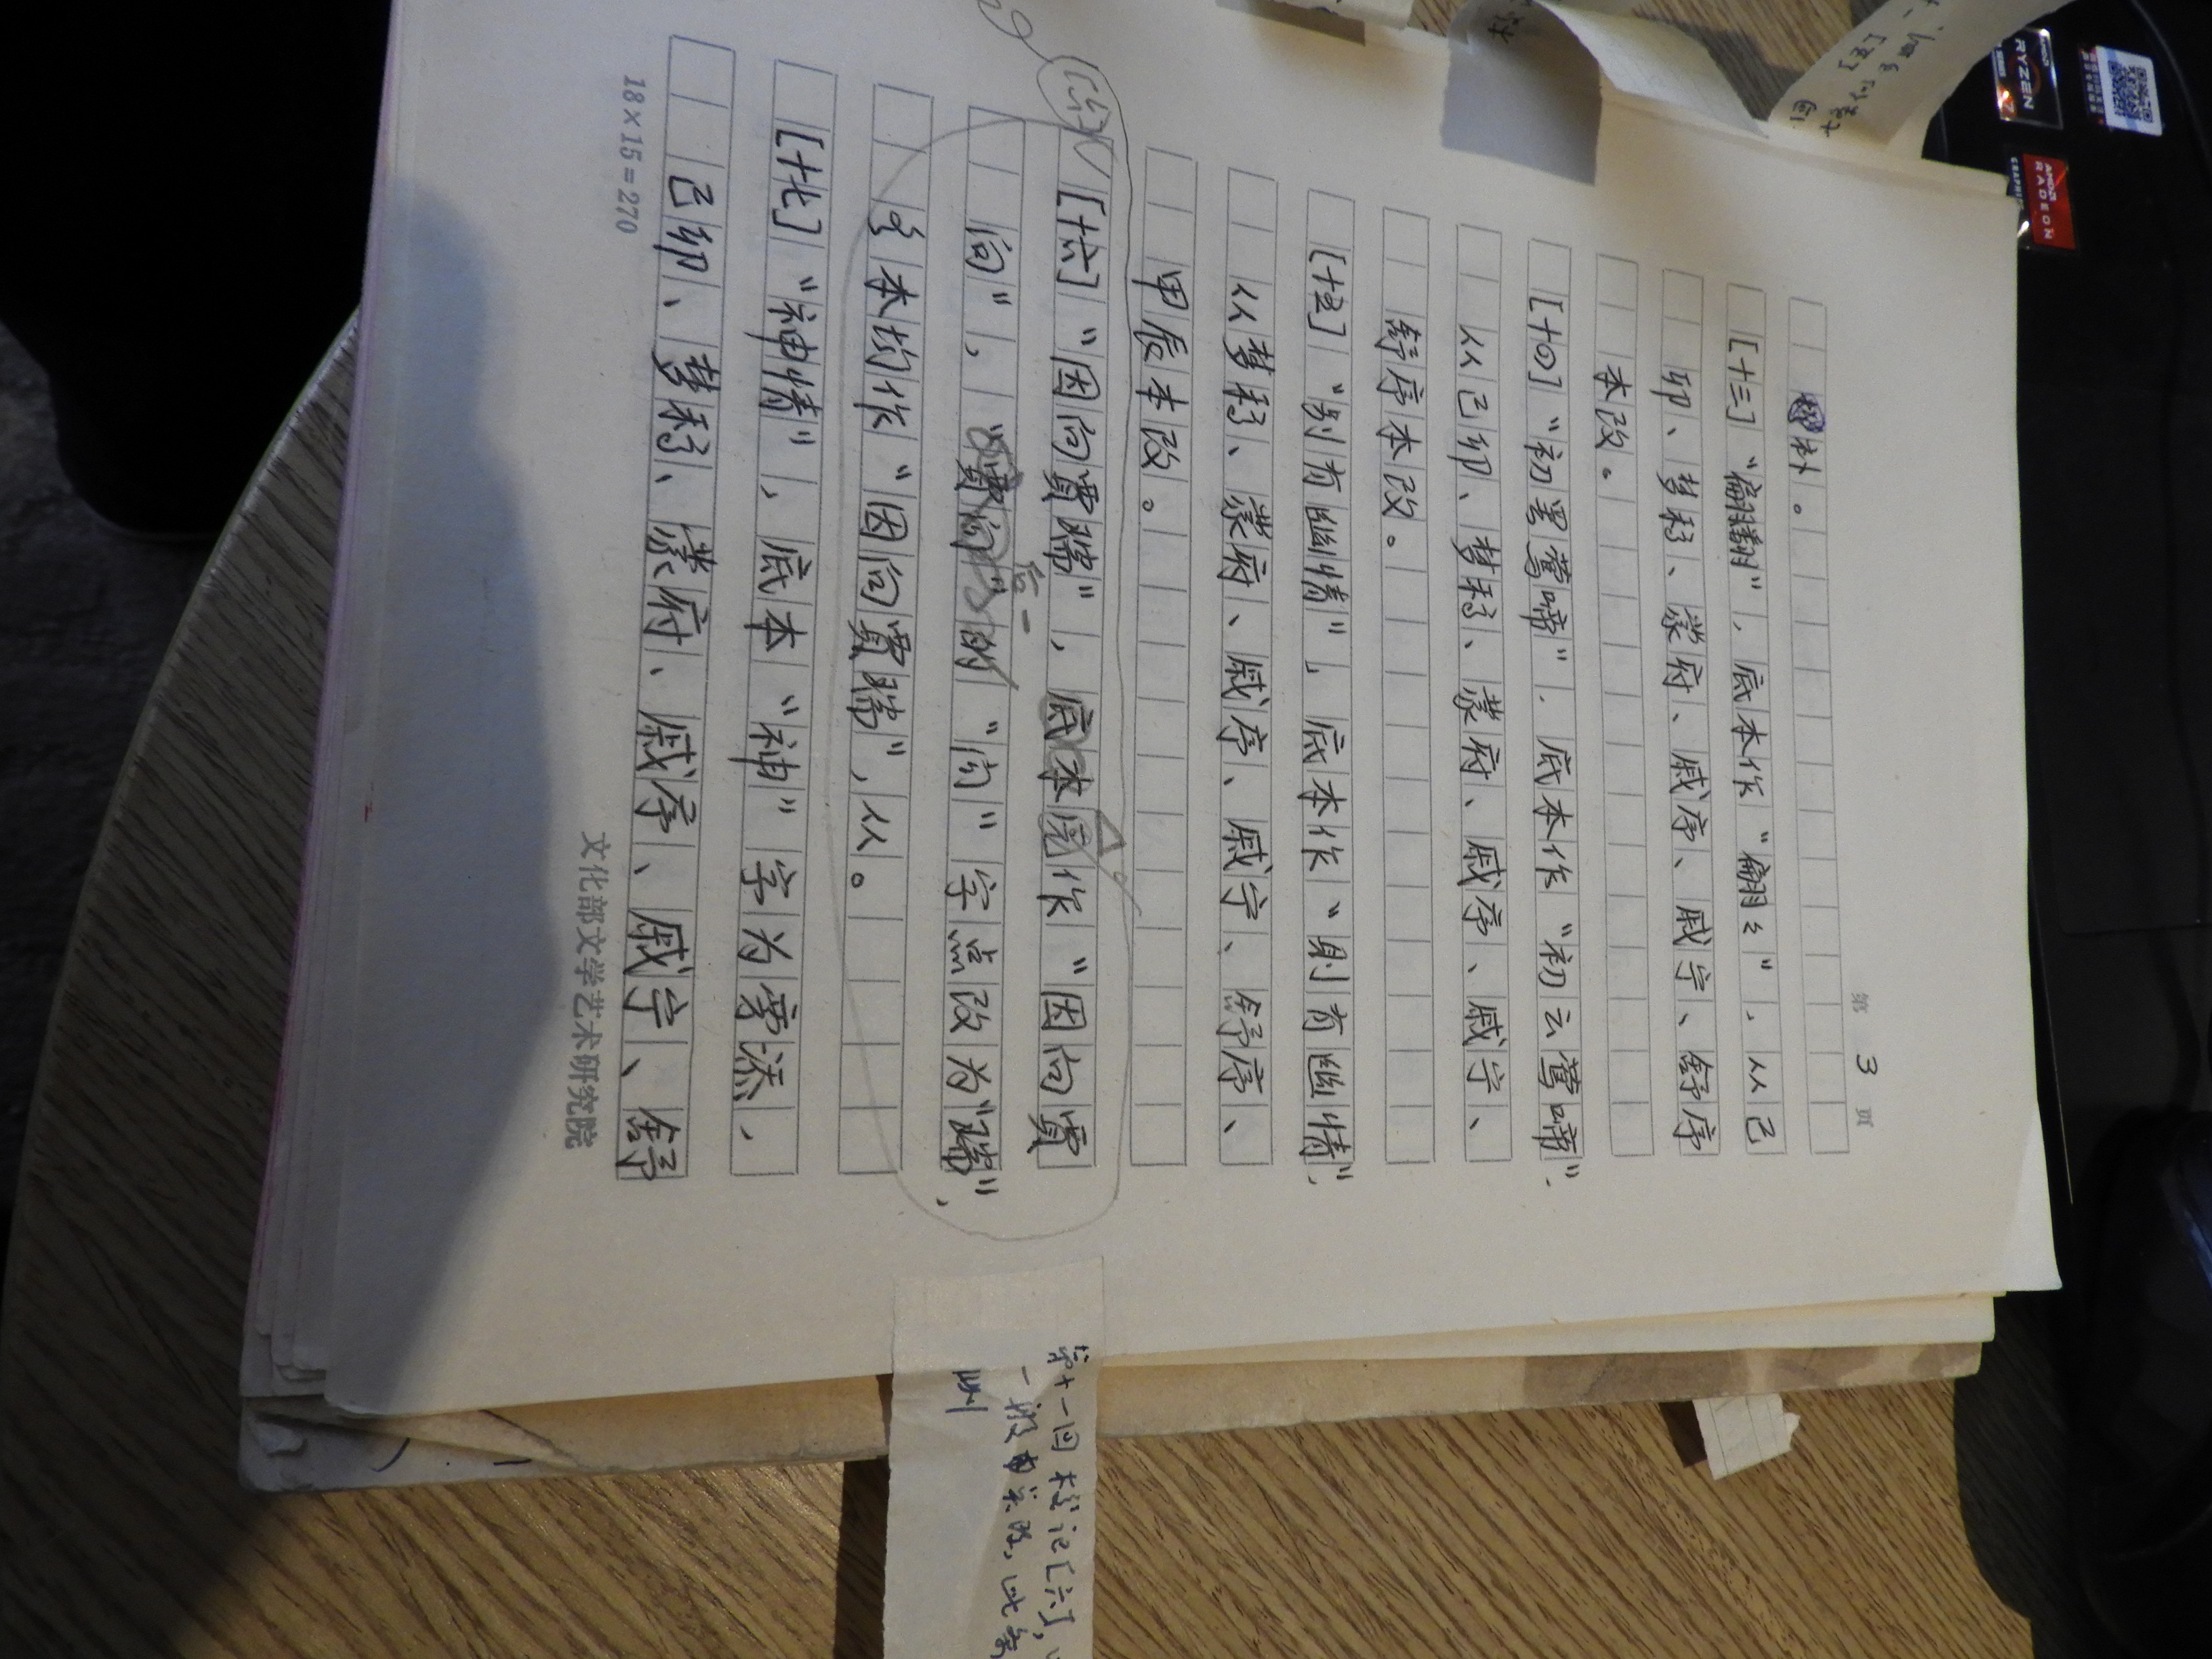 第 3 页
补。
[十三]“翩翻”，底本作“翩々”，从己
卯、梦稿、蒙府、戚序、戚宁、舒序
本改。
[十四]“初罢莺啼”，底本作“初云莺啼”，
从己卯、梦稿、蒙府、戚序、戚宁、
舒序本改。
[十五]“别有幽情”，底本作“則有幽情”，
从梦稿、蒙府、戚序、戚宁、舒序、
甲辰本改。
[十六]“因向賈瑞”，底本作“因向賈
向”，后一“向”字点改为“瑞”，
各本均作“因向賈瑞”，从。
[十七]“神情”，底本“神”字为旁添，
己卯、梦稿、蒙府、戚序、戚宁、舒
18×15=270
文化部文学艺术研究院
第十一回校记[六]，
一般
此条
删
AMD
RYZEN
7
AMD
RADEON